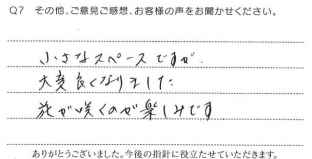 Q7 その他、ご意見ご感想、お客様の声をお聞かせください。
小さなスペースですが、
大変良くなりました
花が咲くのが楽しみです
ありがとうございました。今後の指針に役立たせていただきます。